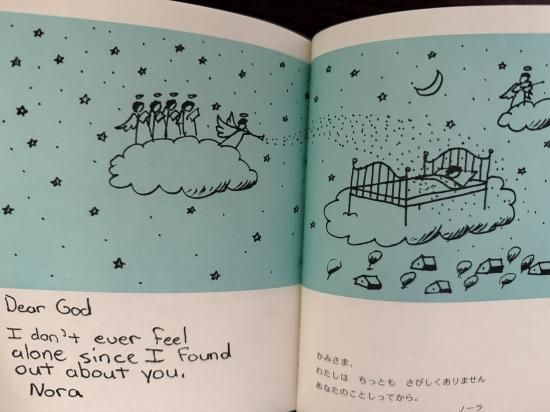 Dear God
I don't ever feel
alone since I found
out about you.
Nora
かみさま、
わたしは ちっとも さびしくありません
あなたのことしってから。
ノーラ